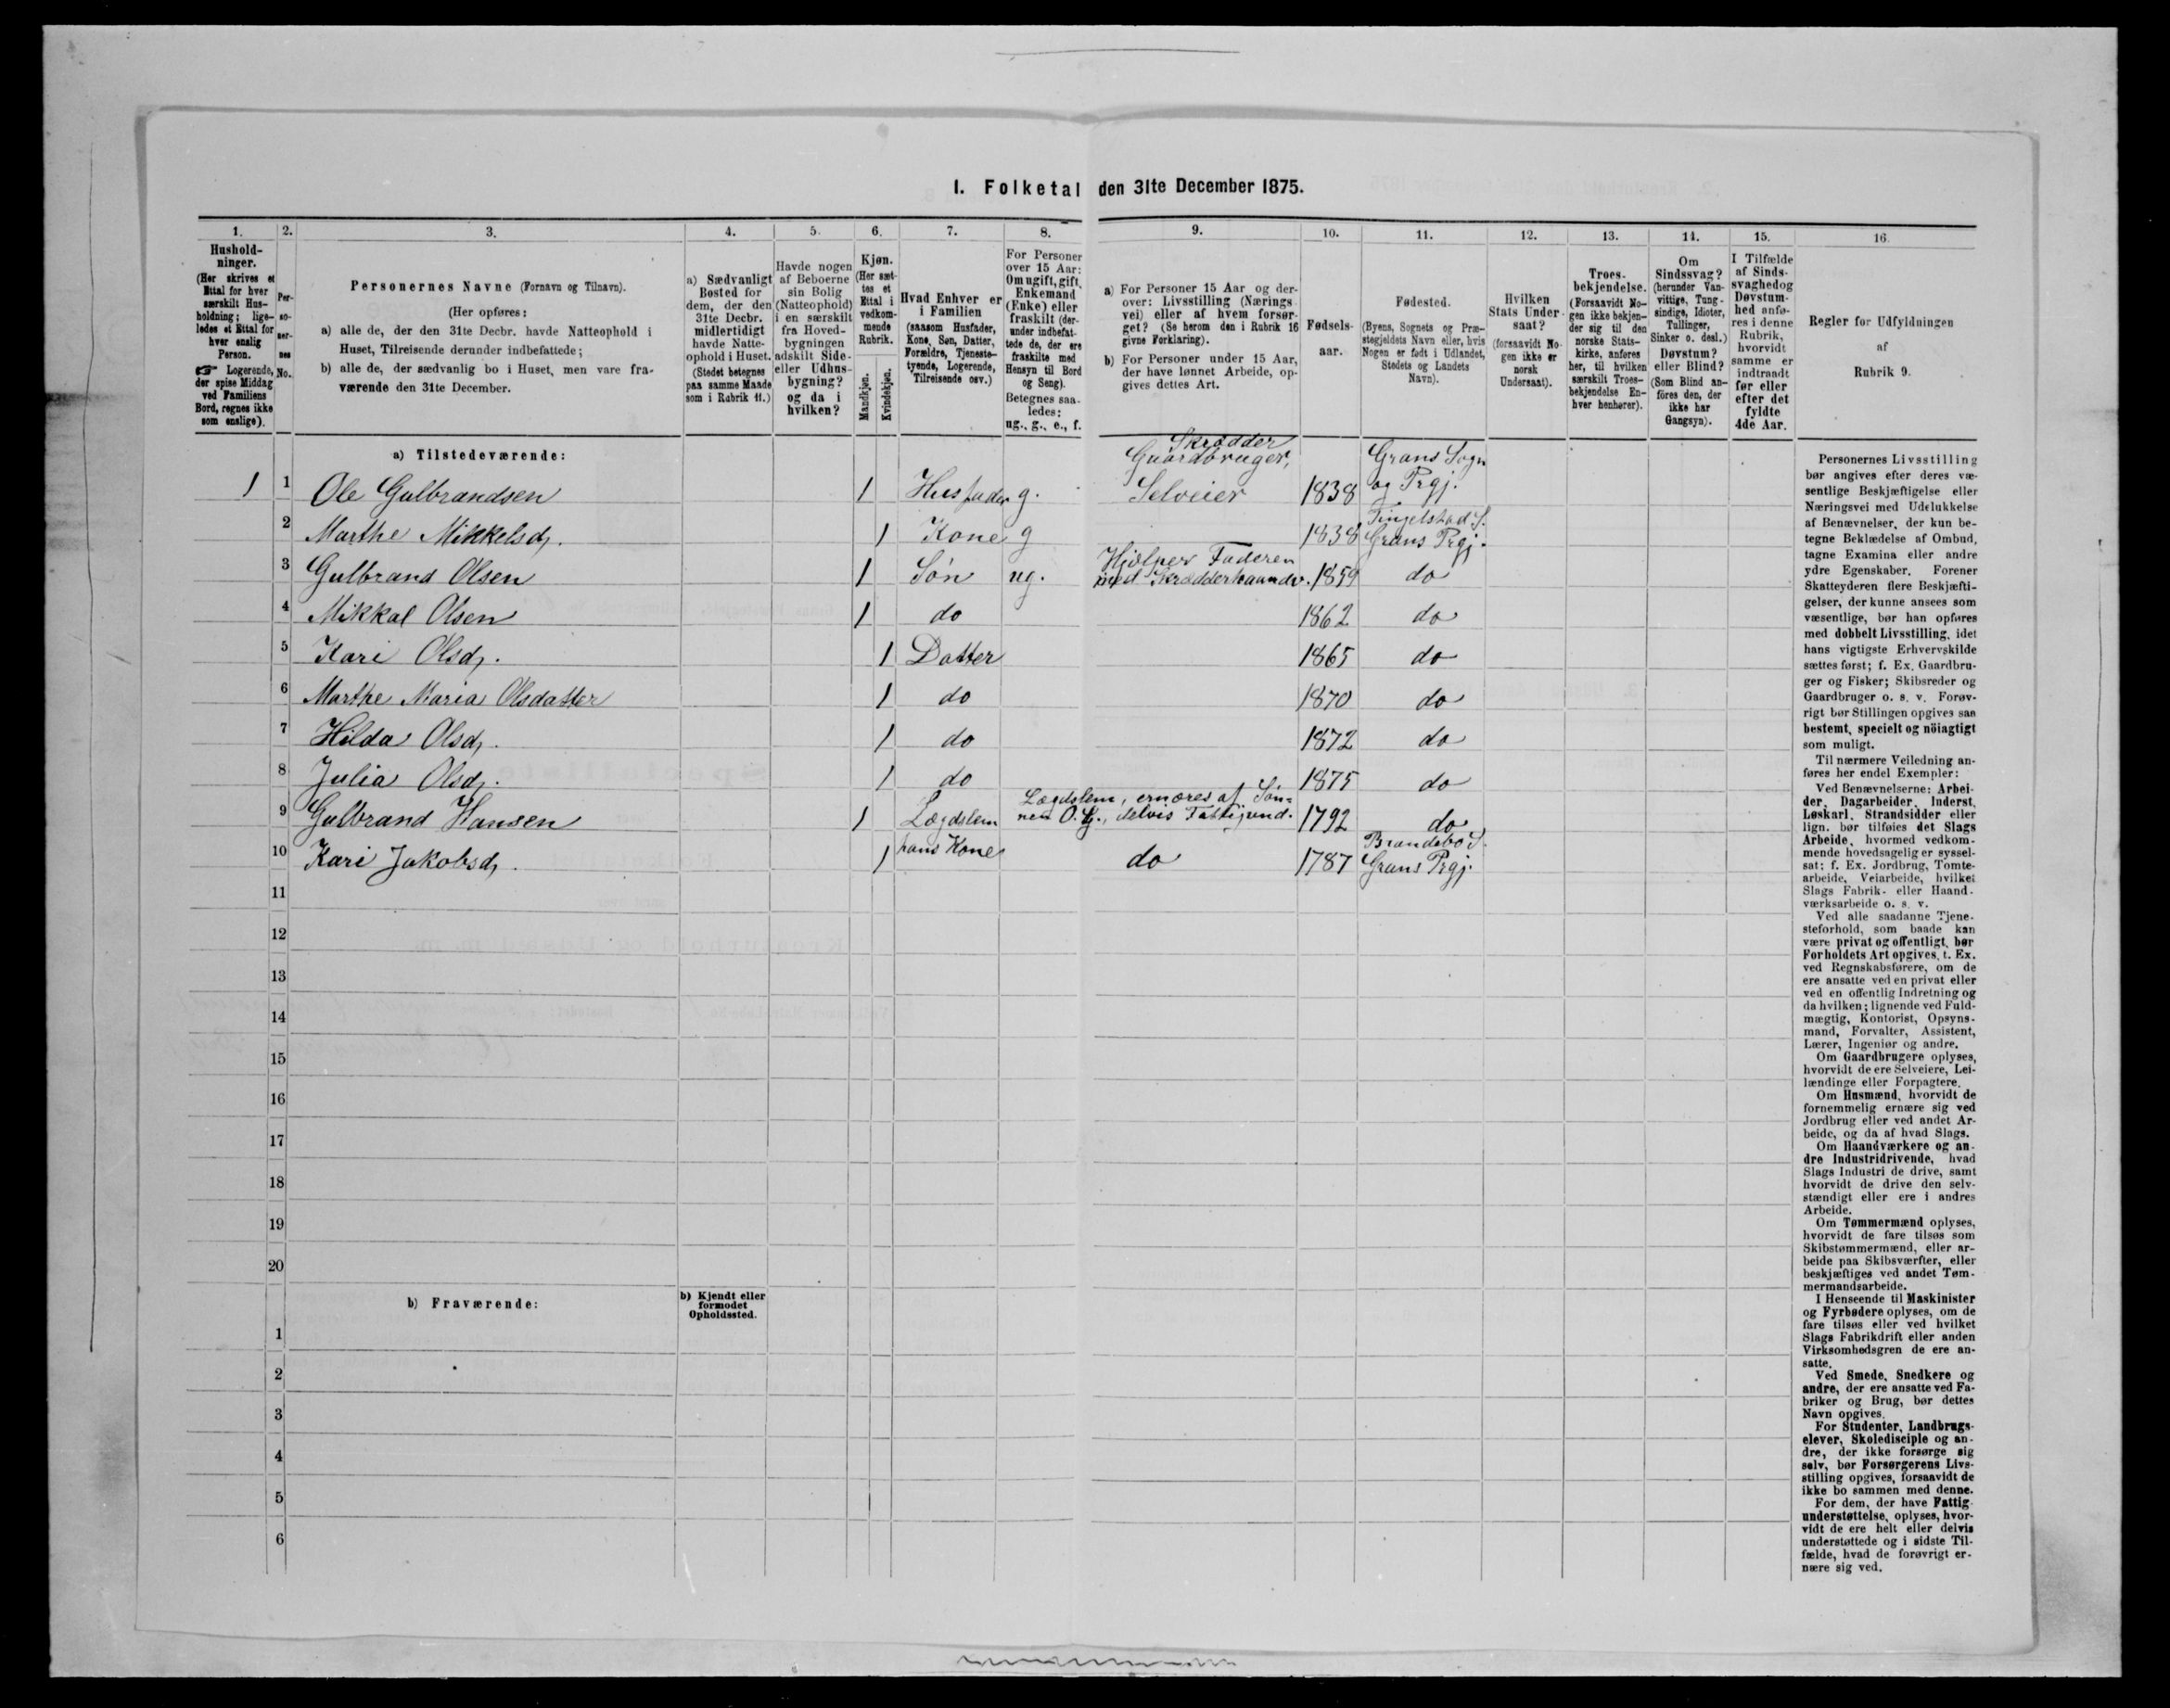 I. Folketal den 31te December 1875.
1.
Hushold-
ninger.
(Her skrives et
Ettal for hver
særskilt Hus-
holdning; lige-
ledes et Ettal for
hver enslig
Person.
Logerende,
der spise Middag
ved Familiens
Bord, regnes ikke
som enslige).
2.
Per-
so-
ner-
nes
No.
3.
Personernes Navne (Fornavn og Tilnavn).
(Her opføres:
a) alle de, der den 31te Decbr. havde Natteophold i
Huset, Tilreisende derunder indbefattede;
b) alle de, der sædvanlig bo i Huset, men vare fra-
værende den 31te December.
4.
a) Sædvanligt
Bosted for
dem, der den
31te Decbr.
midlertidigt
havde Natte-
ophold i Huset.
(Stedet betegnes
paa samme Maade
som i Rubrik 11.)
5.
Havde nogen
af Beboerne
sin Bolig
(Natteophold)
i en særskilt
fra Hoved-
bygningen
adskilt Side-
eller Udhus-
bygning?
og da i
hvilken?
6.
Kjøn.
(Her sæt-
tes et
Ettal i
vedkom-
mende
Rubrik.
Mandkjøn.
Kvindekjøn.
7.
Hvad Enhver er
i Familien
(saasom Husfader,
Kone, Søn, Datter,
Forældre, Tjeneste-
tyende, Logerende,
Tilreisende osv.)
8.
For Personer
over 15 Aar:
Om ugift, gift,
Enkemand
(Enke) eller
fraskilt (der-
under indbefat-
tede de, der ere
fraskilte med
Hensyn til Bord
og Seng).
Betegnes saa-
ledes:
ug., g., e., f.
9.
a) For Personer 15 Aar og der-
over: Livsstilling (Nærings-
vei) eller af hvem forsør-
get? (Se herom den i Rubrik 16
givne Forklaring).
b) For Personer under 15 Aar,
der have lønnet Arbeide, op-
gives dettes Art.
10.
Fødsels-
aar.
11.
Fødested.
(Byens, Sognets og Præ-
stegjeldets Navn eller, hvis
Nogen er født i Udlandet,
Stedets og Landets
Navn).
12.
Hvilken
Stats Under-
saat?
(forsaavidt No-
gen ikke er
norsk
Undersaat).
13.
Troes-
bekjendelse.
(Forsaavidt No-
gen ikke bekjen-
der sig til den
norske Stats-
kirke, anføres
her, til hvilken
særskilt Troes-
bekjendelse En-
hver henhører).
14.
Om
Sindssvag?
(herunder Van-
vittige, Tung-
sindige, Idioter,
Tullinger,
Sinker o. desl.)
Døvstum?
eller Blind?
(Som Blind an-
føres den, der
ikke har
Gangsyn).
15.
I Tilfælde
af Sinds-
svaghed og
Døvstum-
hed anfø-
res i denne
Rubrik,
hvorvidt
samme er
indtraadt
før eller
efter det
fyldte
4de Aar.
16.
Regler for Udfyldningen
af
Rubrik 9.
a) Tilstedeværende:
Skrædder
Gaardbruger, Grans Sogn
1 1 Ole Gulbrandsen 1 Husfader g. Selveier 1838 og Prgj.
Tingelstad S.
2 Marthe Mikkelsd. 1 Kone g 1838 Grans Prgj.
Hjelper Faderen
3 Gulbrand Olsen 1 Søn ug. med Skrædderhaandv. 1859 do
4 Mikkal Olsen 1 do 1862 do
5 Kari Olsd. 1 Datter 1865 do
6 Marthe Maria Olsdatter 1 do 1870 do
7 Hilda Olsd. 1 do 1872 do
8 Julia Olsd. 1 do 1875 do
Lægdslem, ernæres af Søn-
9 Gulbrand Hansen 1 Lægdslem nen O. G., delvis Fattigund. 1792 do
Brandebo S.
10 Kari Jakobsd. 1 hans Kone do 1787 Grans Prgj.
11
12
13
14
15
16
17
18
19
20
b) Fraværende:
b) Kjendt eller
formodet
Opholdssted.
1
2
3
4
5
6
Personernes Livsstilling
bør angives efter deres væ-
sentlige Beskjæftigelse eller
Næringsvei med Udelukkelse
af Benævnelser, der kun be-
tegne Beklædelse af Ombud,
tagne Examina eller andre
ydre Egenskaber. Forener
Skatteyderen flere Beskjæfti-
gelser, der kunne ansees som
væsentlige, bør han opføres
med dobbelt Livsstilling, idet
hans vigtigste Erhvervskilde
sættes først; f. Ex. Gaardbru-
ger og Fisker; Skibsreder og
Gaardbruger o. s. v. Forøv-
rigt bør Stillingen opgives saa
bestemt, specielt og nöiagtigt
som muligt.
Til nærmere Veiledning an-
føres her endel Exempler:
Ved Benævnelserne: Arbei-
der, Dagarbeider, Inderst,
Løskarl, Strandsidder eller
lign. bør tilføies det Slags
Arbeide, hvormed vedkom-
mende hovedsagelig er syssel-
sat; f. Ex. Jordbrug, Tomte-
arbeide, Veiarbeide, hvilket
Slags Fabrik- eller Haand-
værksarbeide o. s. v.
Ved alle saadanne Tjene-
steforhold, som baade kan
være privat og offentligt, bør
Forholdets Art opgives, t. Ex.
ved Regnskabsførere, om de
ere ansatte ved en privat eller
ved en offentlig Indretning og
da hvilken; lignende ved Fuld-
mægtig, Kontorist, Opsyns-
mand, Forvalter, Assistent,
Lærer, Ingeniør og andre.
Om Gaardbrugere oplyses,
hvorvidt de ere Selveiere, Lei-
lændinge eller Forpagtere.
Om Husmænd, hvorvidt de
fornemmelig ernære sig ved
Jordbrug eller ved andet Ar-
beide, og da af hvad Slags.
Om Haandværkere og an-
dre Industridrivende, hvad
Slags Industri de drive, samt
hvorvidt de drive den selv-
stændigt eller ere i andres
Arbeide.
Om Tømmermænd oplyses,
hvorvidt de fare tilsøs som
Skibstømmermænd, eller ar-
beide paa Skibsværfter, eller
beskjæftiges ved andet Tøm-
mermandsarbeide.
I Henseende til Maskinister
og Fyrbødere oplyses, om de
fare tilsøs eller ved hvilket
Slags Fabrikdrift eller anden
Virksomhedsgren de ere an-
satte.
Ved Smede, Snedkere og
andre, der ere ansatte ved Fa-
briker og Brug, bør dettes
Navn opgives.
For Studenter, Landbrugs-
elever, Skoledisciple og an-
dre, der ikke forsørge sig
selv, bør Forsørgerens Livs-
stilling opgives, forsaavidt de
ikke bo sammen med denne.
For dem, der have Fattig-
understøttelse, oplyses, hvor-
vidt de ere helt eller delvis
understøttede og i sidste Til-
fælde, hvad de forøvrigt er-
nære sig ved.